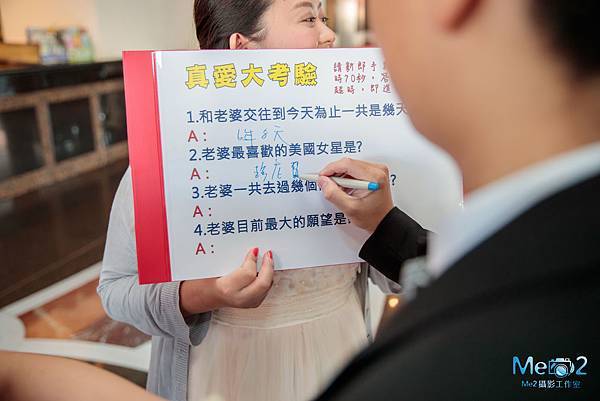 真愛大考驗
請新郎手
時70秒,
1.和老婆交往到今天為止一共是幾天
A:
2.老婆最喜歡的美國女星是?
A:
3.老婆一共去過幾個
?
A:
4.老婆目前最大的願望是
A:
Me2
Me2攝影工作室